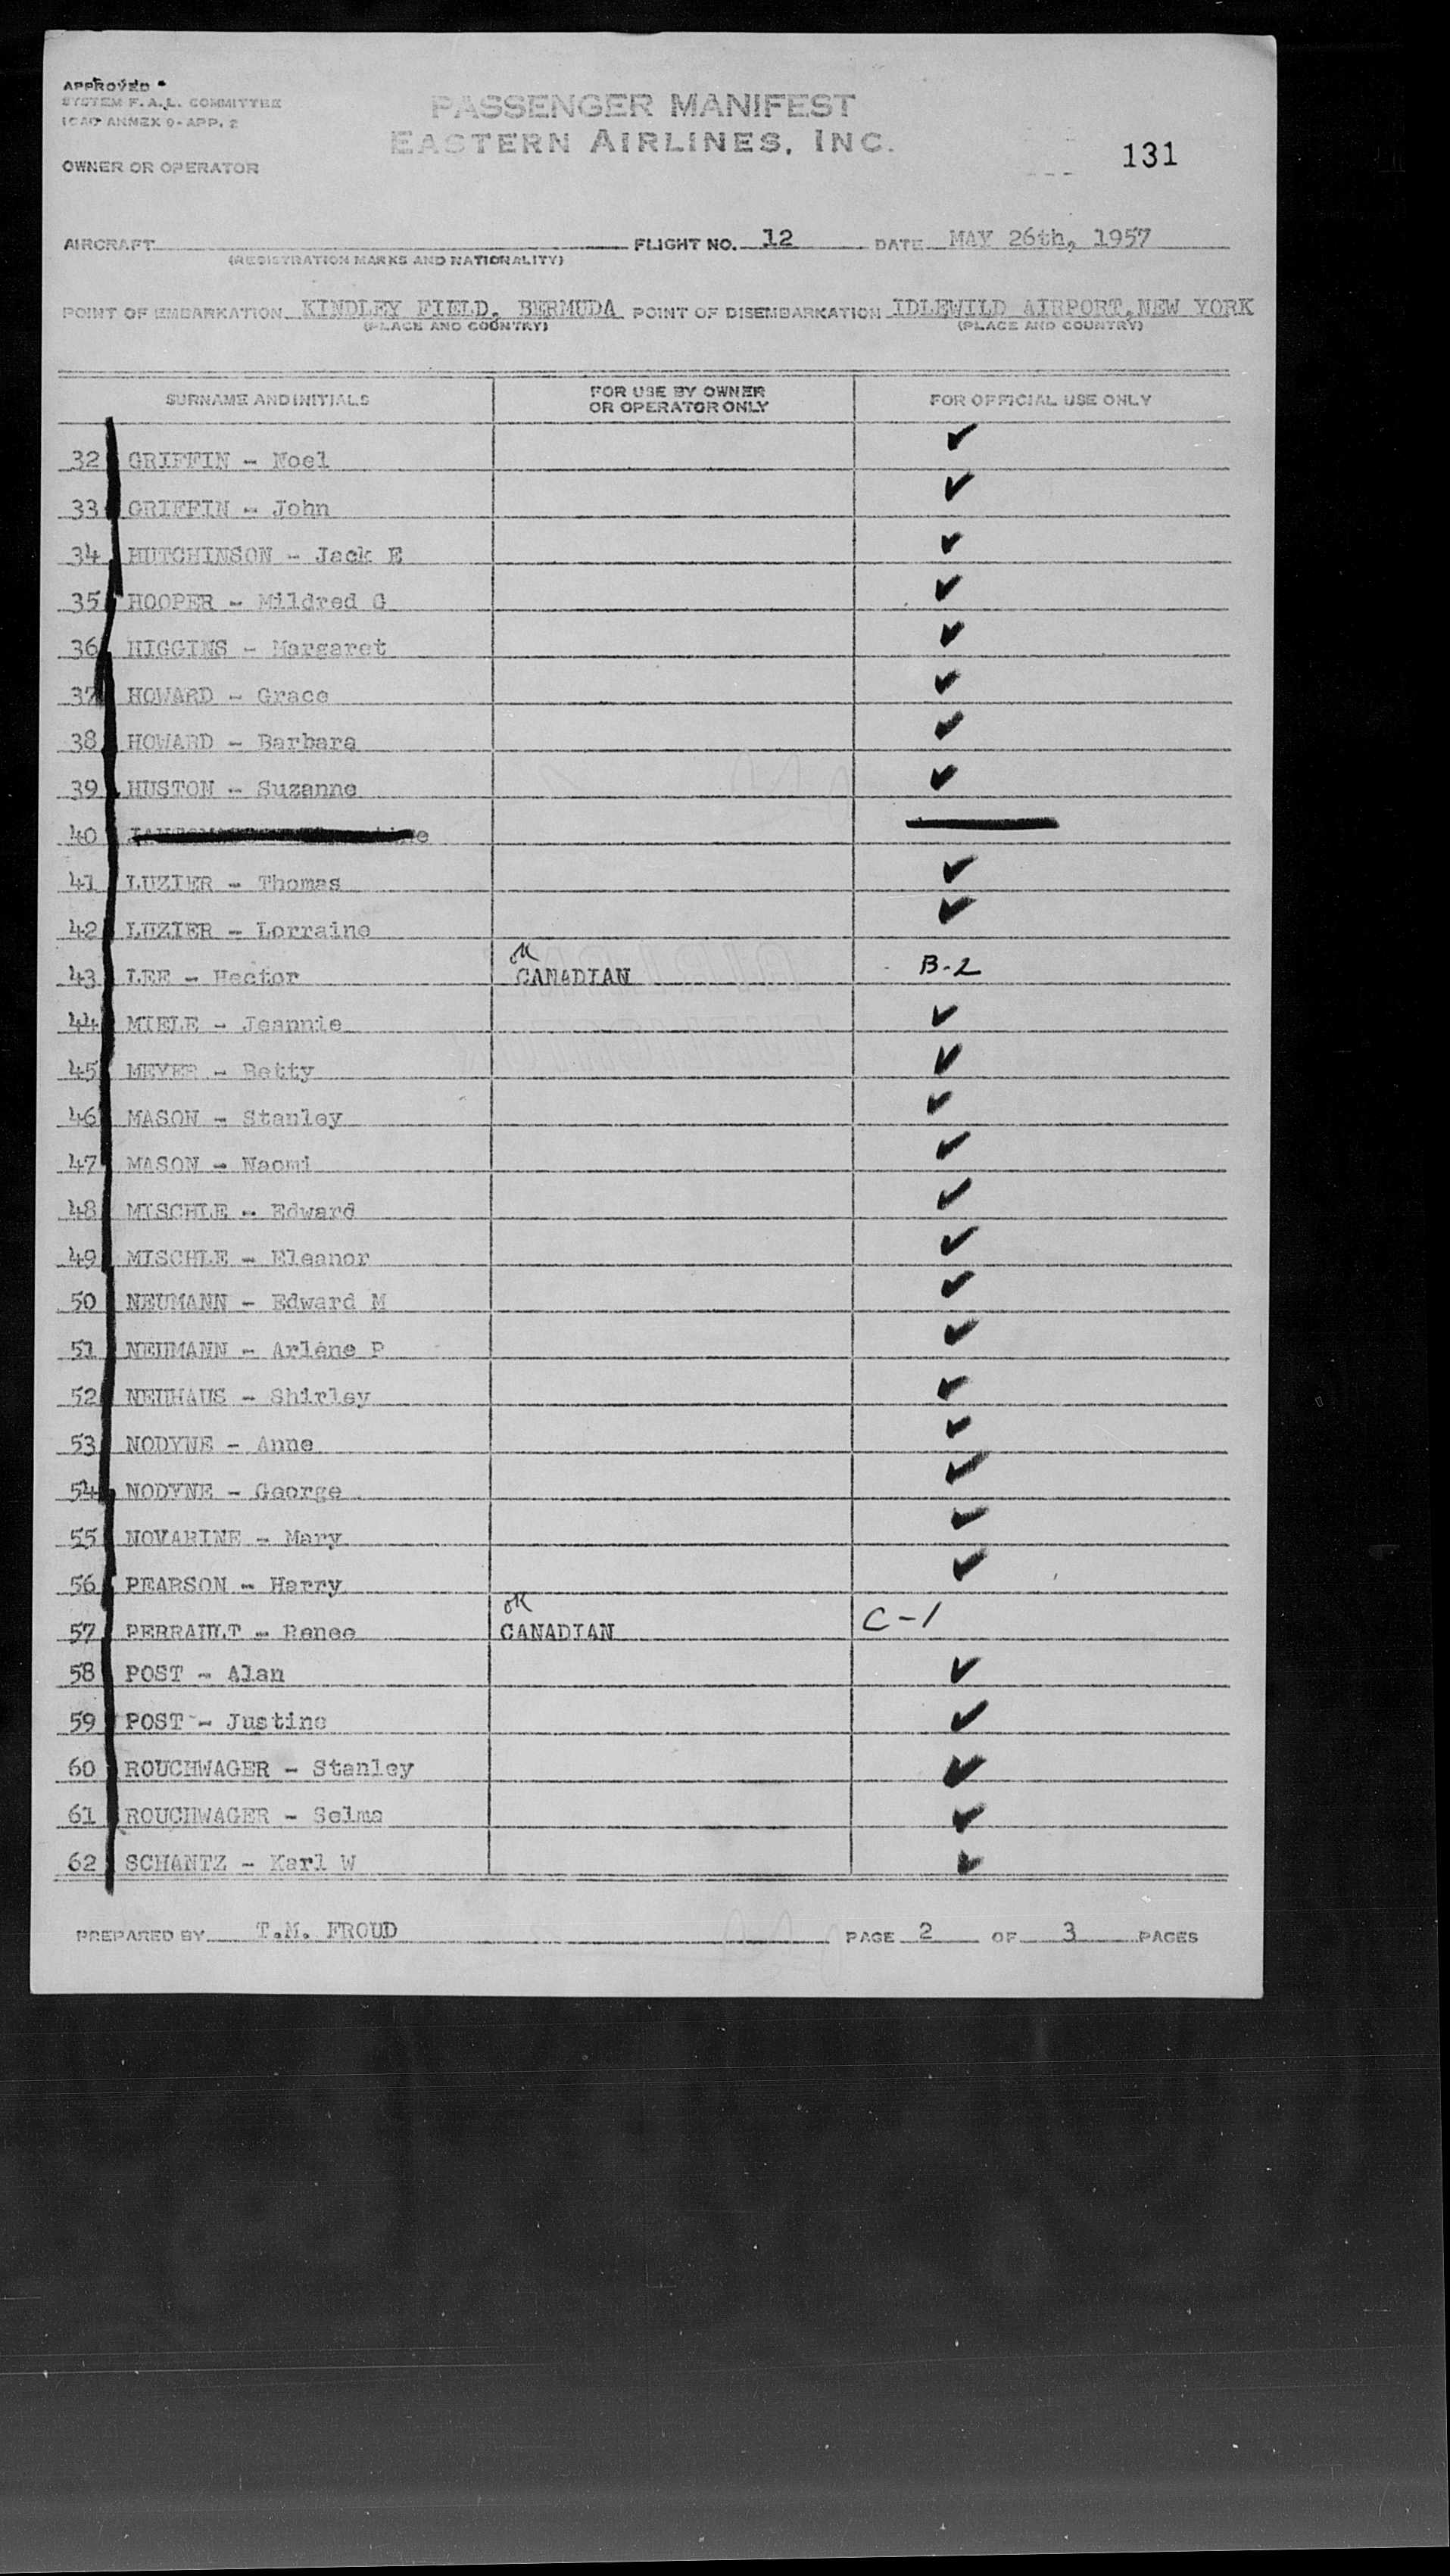 APPROVED
SYSTEM F.A.L. COMMITTEE
ICAO ANNEX 9-APP. 2
PASSENGER MANIFEST
EASTERN AIRLINES, INC.
131
OWNER OR OPERATOR
AIRCRAFT FLIGHT NO. 12 DATE MAY 26th, 1957
(REGISTRATION MARKS AND NATIONALITY)
POINT OF EMBARKATION KINDLEY FIELD, BERMUDA POINT OF DISEMBARKATION IDLEWILD AIRPORT, NEW YORK
(PLACE AND COUNTRY) (PLACE AND COUNTRY)
SURNAME AND INITIALS FOR USE BY OWNER OR OPERATOR ONLY FOR OFFICIAL USE ONLY
32 GRIFFIN - Noel ✓
33 GRIFFIN - John ✓
34 HUTCHINSON - Jack E ✓
35 HOOPER - Mildred G ✓
36 HIGGINS - Margaret ✓
37 HOWARD - Grace ✓
38 HOWARD - Barbara ✓
39 HUSTON - Suzanne ✓
40
41 LUZIER - Thomas ✓
42 LUZIER - Lorraine ✓
43 LEE - Hector OK CANADIAN B-2
44 MIELE - Jeannie ✓
45 MEYER - Betty ✓
46 MASON - Stanley ✓
47 MASON - Naomi ✓
48 MISCHLE - Edward ✓
49 MISCHLE - Eleanor ✓
50 NEUMANN - Edward M ✓
51 NEUMANN - Arlene P ✓
52 NEUHAUS - Shirley ✓
53 NODYNE - Anne ✓
54 NODYNE - George ✓
55 NOVARINE - Mary ✓
56 PEARSON - Harry ✓
57 PERRAULT - Renee OK CANADIAN C-1
58 POST - Alan ✓
59 POST - Justine ✓
60 ROUCHWAGER - Stanley ✓
61 ROUCHWAGER - Selma ✓
62 SCHANTZ - Karl W ✓
PREPARED BY T.M. FROUD PAGE 2 OF 3 PAGES